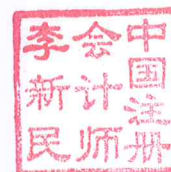 中国注册
会计师
李新民